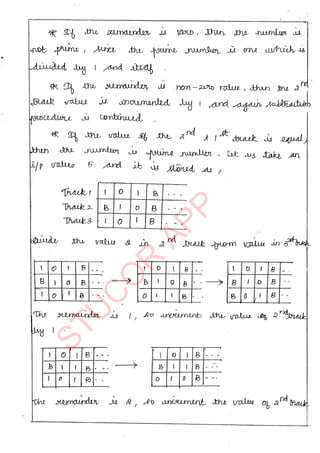 * If the remainder is zero, then the number is
not prime, since the prime number is one which is
divided by 1 and itself.
* If the remainder is non-zero value, then the 2nd
track value is incremented by 1 and again subtraction
procedure is continued.
* If the value of the 2nd & 1st track is equal,
then the number is prime number. Let us take an
i/p value 5 and it is stored as,
Track 1 1 0 1 B ...
Track 2 B 1 0 B ...
Track 3 1 0 1 B ...
Divide the value 2 in 2nd track from value in 3rd track
1 0 1 B ... 1 0 1 B ... 1 0 1 B ...
B 1 0 B ... → B 1 0 B ... → B 1 0 B ...
1 0 1 B ... 0 1 1 B ... B 0 1 B ...
The remainder is 1, so increment the value of 2nd track
by 1
1 0 1 B ... 1 0 1 B ...
B 1 1 B ... → B 1 1 B ...
1 0 1 B ... 0 1 0 B ...
The remainder is 2, so increment the value of 2nd track
STUCOR APP